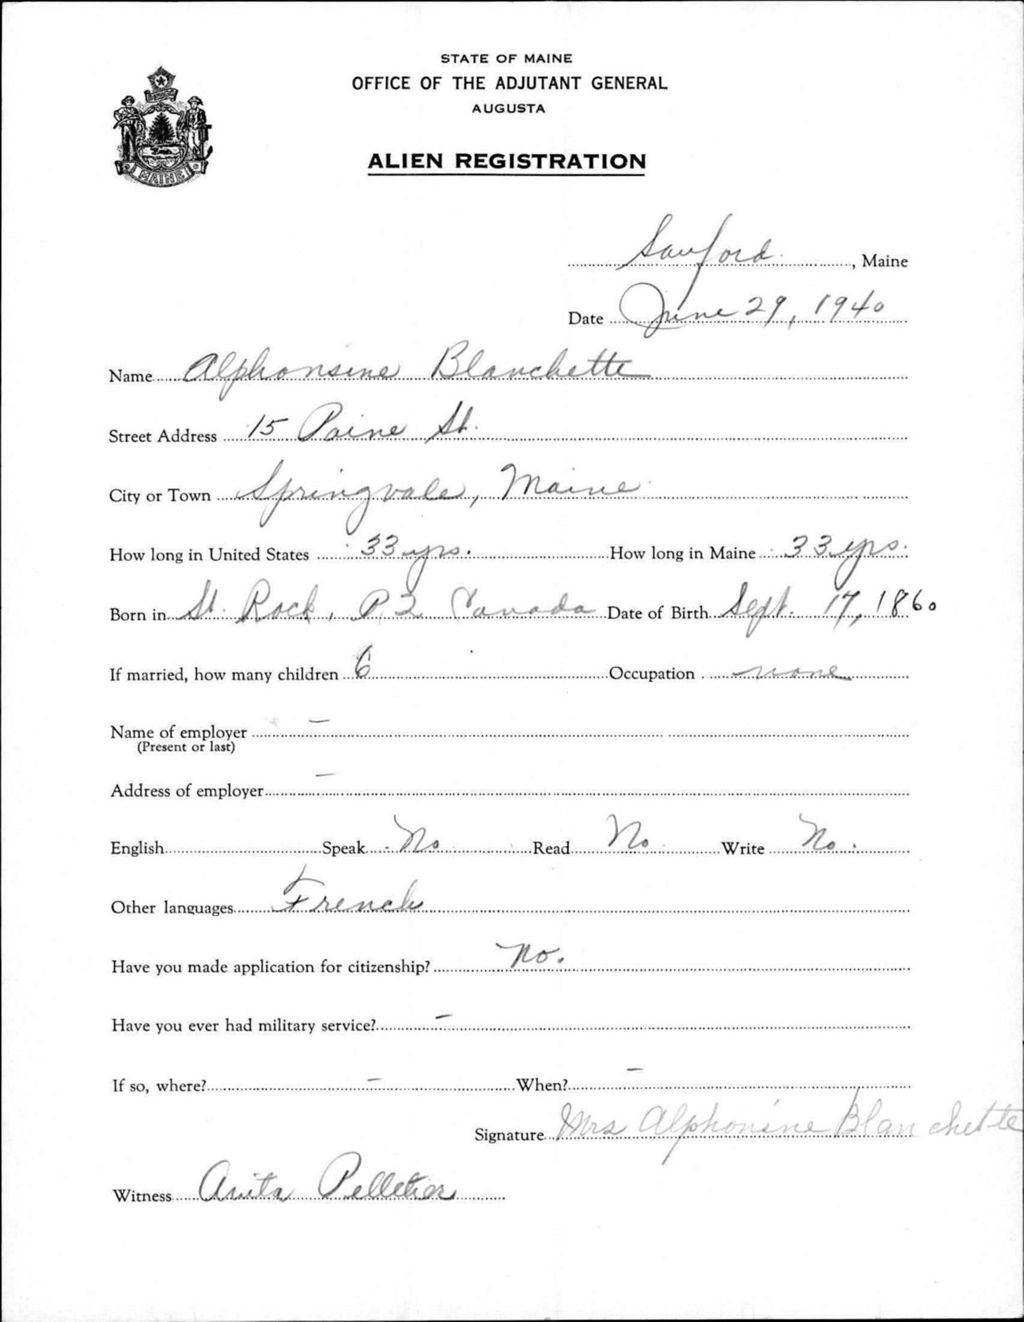 STATE OF MAINE
OFFICE OF THE ADJUTANT GENERAL
AUGUSTA
MAINE
ALIEN REGISTRATION
Sanford, Maine
Date June 29, 1940
Name Alphonsine Blanchette
Street Address 15 Paine St.
City or Town Springvale, Maine
How long in United States 33 yrs. How long in Maine 33 yrs.
Born in St. Rock, P2 Canada Date of Birth Sept. 17, 1860
If married, how many children 6 Occupation none
Name of employer –
(Present or last)
Address of employer –
English Speak No Read No Write No.
Other languages French
Have you made application for citizenship? No.
Have you ever had military service? –
If so, where? – When? –
Signature Mrs Alphonsine Blanchette
Witness Anita Pelletier